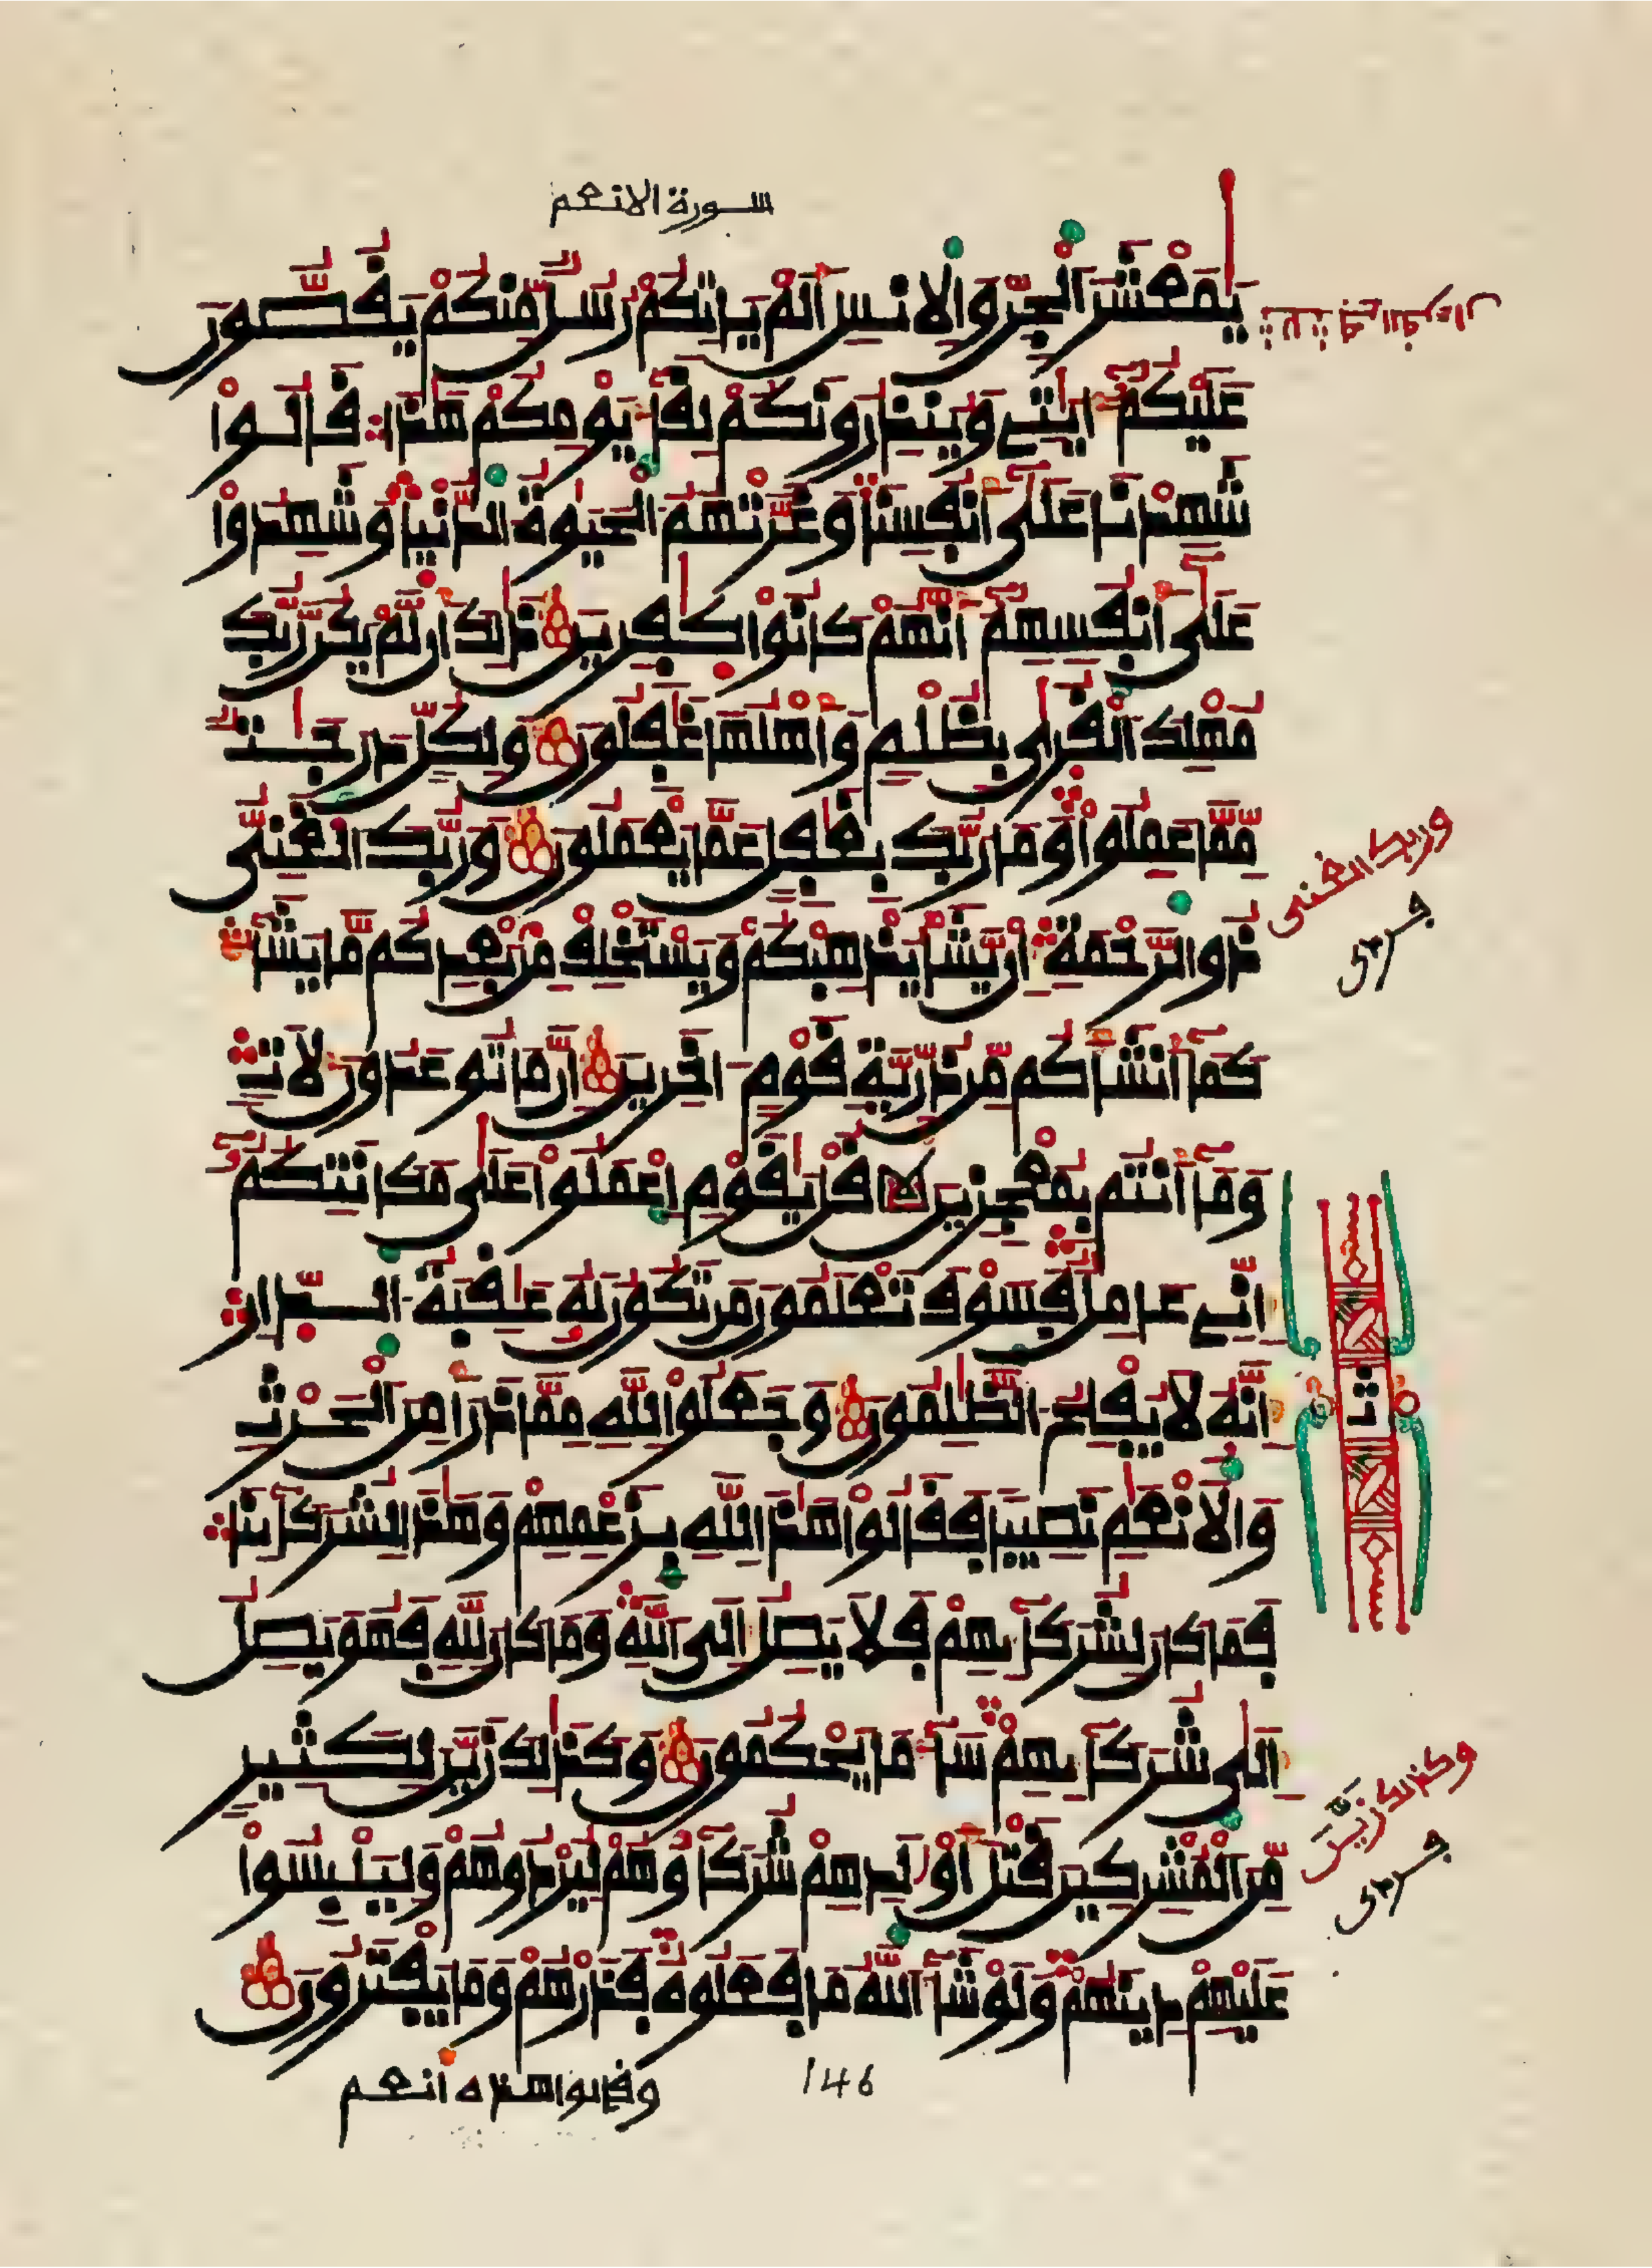 سورة الانعم
يَٰمَعْشَرَ اَلْجِنِّ وَالِانسِ أَلَمْ يَاتِكُمْ رُسُلٌ مِّنكُمْ يَقُصُّونَ
عَلَيْكُمُ ءَايَٰتِے وَيُنذِرُونَكُمْ لِقَآءَ يَوْمِكُمْ هَٰذَا قَالُواْ
شَهِدْنَا عَلَىٰ أَنفُسِنَا وَغَرَّتْهُمُ اُلْحَيَوٰةُ اُلدُّنْيَا وَشَهِدُواْ
عَلَىٰ أَنفُسِهِمُ أَنَّهُمْ كَانُواْ كَٰفِرِينَ ذَٰلِكَ أَن لَّمْ يَكُن رَّبُّكَ
مُهْلِكَ اَلْقُرَىٰ بِظُلْمٍ وَأَهْلُهَا غَٰفِلُونَ وَلِكُلٍّ دَرَجَٰتٌ
مِّمَّا عَمِلُواْ وَمَا رَبُّكَ بِغَٰفِلٍ عَمَّا يَعْمَلُونَ وَرَبُّكَ اَلْغَنِيُّ
وربك الغنى
ذُو الرَّحْمَةِ إِنْ يَّشَأْ يُذْهِبْكُمْ وَيَسْتَخْلِفْ مِنۢ بَعْدِكُم مَّا يَشَآءُ
كَمَآ أَنشَأَكُم مِّن ذُرِّيَّةِ قَوْمٍ اٰخَرِينَ إِنَّ مَا تُوعَدُونَ لَأٓتٍ
وَمَآ أَنتُم بِمُعْجِزِينَ قُلْ يَٰقَوْمِ اِعْمَلُواْ عَلَىٰ مَكَانَتِكُمُ
إِنِّے عَامِلٌ فَسَوْفَ تَعْلَمُونَ مَن تَكُونُ لَهُ عَٰقِبَةُ اُلدّ۪ارِ
إِنَّهُ لَا يُفْلِحُ اُلظَّٰلِمُونَ وَجَعَلُواْ لِلهِ مِمَّا ذَرَأَ مِنَ اَلْحَرْثِ
ثمن
وَالَانْعَٰمِ نَصِيباً فَقَالُواْ هَٰذَا لِلهِ بِزَعْمِهِمْ وَهَٰذَا لِشُرَكَآئِنَا
فَمَا كَانَ لِشُرَكَآئِهِمْ فَلَا يَصِلُ إِلَى اَللَّهِ وَمَا كَانَ لِلهِ فَهُوَ يَصِلُ
إِلَىٰ شُرَكَآئِهِمْ سَآءَ مَا يَحْكُمُونَ وَكَذَٰلِكَ زَيَّنَ لِكَثِيرٍ
وكذلك زَيَّنَ
مِّنَ اَلْمُشْرِكِينَ قَتْلَ أَوْلَٰدِهِمْ شُرَكَآؤُهُمْ لِيُرْدُوهُمْ وَلِيَلْبِسُواْ
عَلَيْهِمْ دِينَهُمْ وَلَوْ شَآءَ اَللَّهُ مَا فَعَلُوهُ فَذَرْهُمْ وَمَا يَفْتَرُونَ
وقالوا هذه أنعم
146